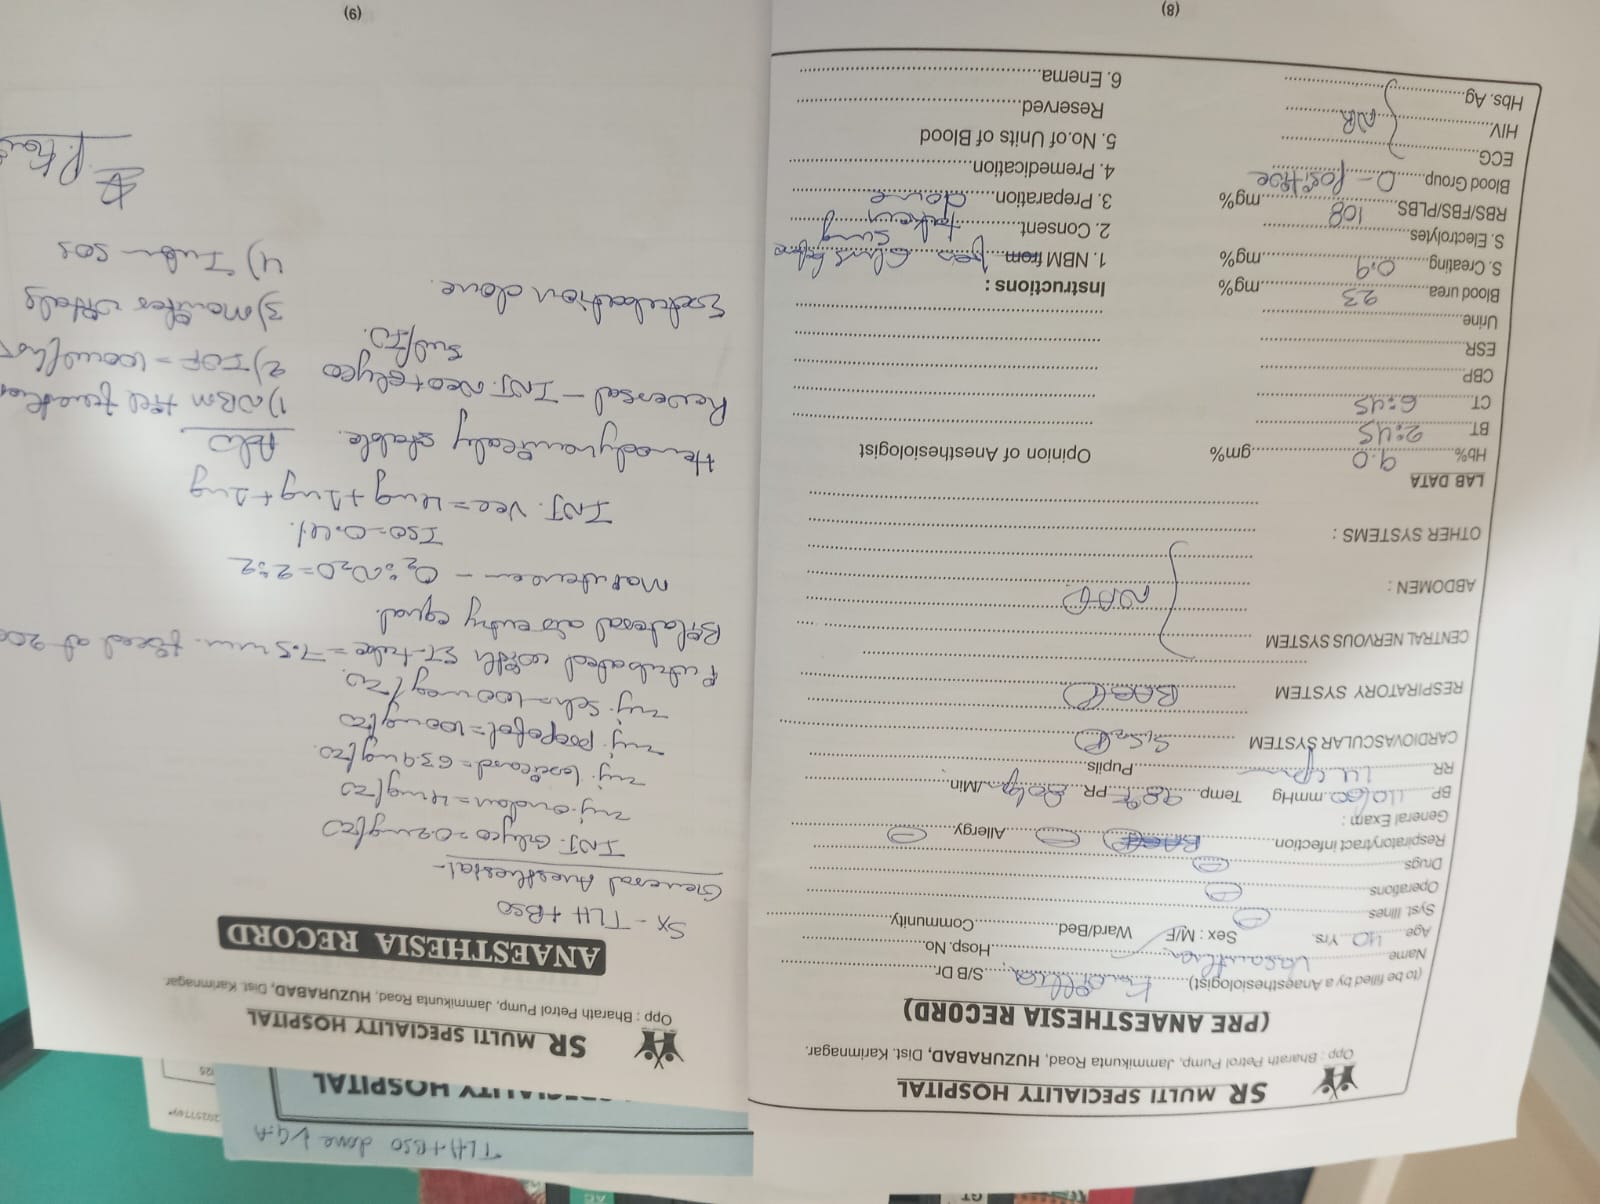 SR MULTI SPECIALITY HOSPITAL
Opp : Bharath Petrol Pump, Jammikunta Road, HUZURABAD, Dist. Karimnagar.
(PRE ANAESTHESIA RECORD)
(to be filled by a Anaesthesiologist) S/B Dr.
Name Vasantha Hosp. No.
Age 40 Yrs. Sex : M/F Ward/Bed. Community
Syst. Illnes
Operations
Drugs
Respiratorytract infection. Allergy
General Exam :
BP 110/60 mmHg Temp. 98°F PR 80 /Min.
RR 14 Pupils
CARDIOVASCULAR SYSTEM S1S2
RESPIRATORY SYSTEM BAE
CENTRAL NERVOUS SYSTEM
ABDOMEN : NAD
OTHER SYSTEMS :
LAB DATA
Hb% 9.0 gm% Opinion of Anesthesiologist
BT 2:45
CT 6:45
CBP
ESR
Urine
Blood urea 23 mg% Instructions :
S. Creating 0.9 mg% 1. NBM from 6hrs before
S. Electrolytes 2. Consent taken
RBS/FBS/PLBS 108 mg% 3. Preparation done
Blood Group O-Positive 4. Premedication
ECG 5. No.of Units of Blood
HIV NR Reserved
Hbs. Ag 6. Enema
(8)
TLH+BSO done
SPECIALITY HOSPITAL
SR MULTI SPECIALITY HOSPITAL
Opp : Bharath Petrol Pump, Jammikunta Road, HUZURABAD, Dist. Karimnagar
ANAESTHESIA RECORD
Sx - TLH + BSO
General Anesthesia:-
INJ. Glyco = 0.2mg/IV
inj. ondan = 4mg/IV
inj. loxicard = 63.9mg/IV
inj. propofol = 100mg/IV
inj. sch = 100mg/IV.
Intubated with ET-tube = 7.5mm. fixed at 20c
Bilateral air entry equal.
Maintenance - O2:N2O = 2:2
ISO - 0.4%.
INJ. Vec = 4mg + 1mg + 1mg
Hemodynamically stable. Adv
Reversal - INJ. Neo + Glyco 1) NBM till further
5ml/IV. 2) IVF = 100ml/hr
Extubation done. 3) Monitor vitals
4) Inform SOS
(9)